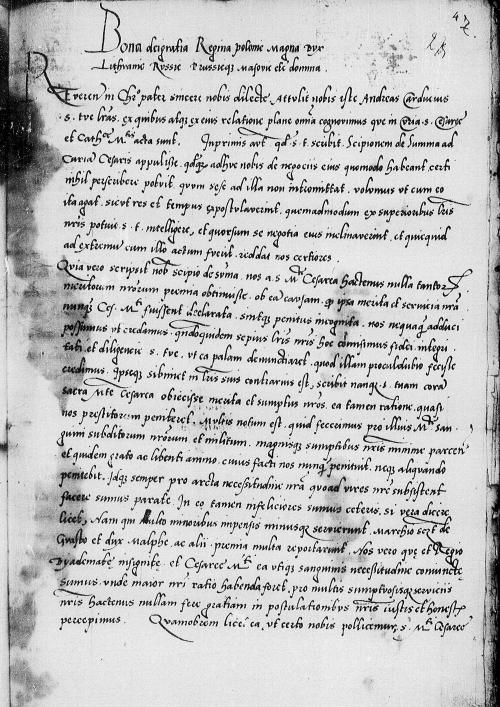 47
28
Bona dei gratia Regina polonie Magna Dux
Lithuanie Russie Prussieque Masovie etc domina.
Reveren in Chro pater sincere nobis dilecte. Attulit nobis iste Andreas Carducius
s. tve lras, ex quibus atque ex eius relatione plane omnia cognovimus que in s. Curie
et Cathce Mtis acta sunt. Inprimis avt qd s. t. scribit, Scipionem de summa ad
Curiam Cesaris appulisse, adhuc nobis de negociis eius quomodo habeant, certi
nihil perscribere potuit, quom sese ad illa non intromittat, volumus vt cum eo
ita agat, sicut res et tempus expostulaverint, quemadmodum ex superioribus lris
nris potuit s. t. intelligere, et quorsum se negotia eius inclinaverint, et quicquid
ad extremum cum illo actum fuerit, reddat nos certiores.
Quia vero scripsit nob Scipio de suma, nos a s. Mte Cesarea hactenus nulla tantor
meritorum nrorum premia obtinuisse, ob eam causam, qd ipsa merita et servicia nra
nunq Ces. Mti fuissent declarata, sintque penitus incognita, nos nequaq adduci
possumus vt credamus, quandoquidem sepius lris nris hoc comisimus fidei, integri
tati, et diligencie s. tve, vt ea palam denunciaret, quod illam procul dubio fecisse
credimus. Ipseque sibimet in lris suis contrarius est, scribit nanque s. tuam cora
sacra Mte Cesarea obiecisse merita et sumptus nros, ea tamen ratione, quasi
nos prestitorum peniteret. Multis notum est, quid fecerimus pro illius Mtis san
guini subditorum nrorum et militum, magnisque sumptibus nris minime parcen
et quidem grato ac libenti animo, cuius facti nos nunq penituit, neque aliquando
penitebit. Idque semper pro arcta necessitudine nra quoad vires nre subsistent
facere sumus parate. In eo tamen infeliciores sumus ceteris, si vera dicere
licet, Nam qui multo minoribus impensis minusque servierunt, Marchio de
Guasto et dux Malphe, ac alii premia multa reportarunt, Nos vero que et Regio
Dyademate insignite, et Cesaree Mti ea vtique sanguinis necessitudine coniuncte
sumus, vnde maior nri ratio habenda foret, pro multis sumptuosisque serviciis
nris hactenus nullam fere gratiam in postulationibus nris iustis et honestis
percepimus. Quamobrem licet ea, vt certo nobis pollicemur, s. Mti Cesaree